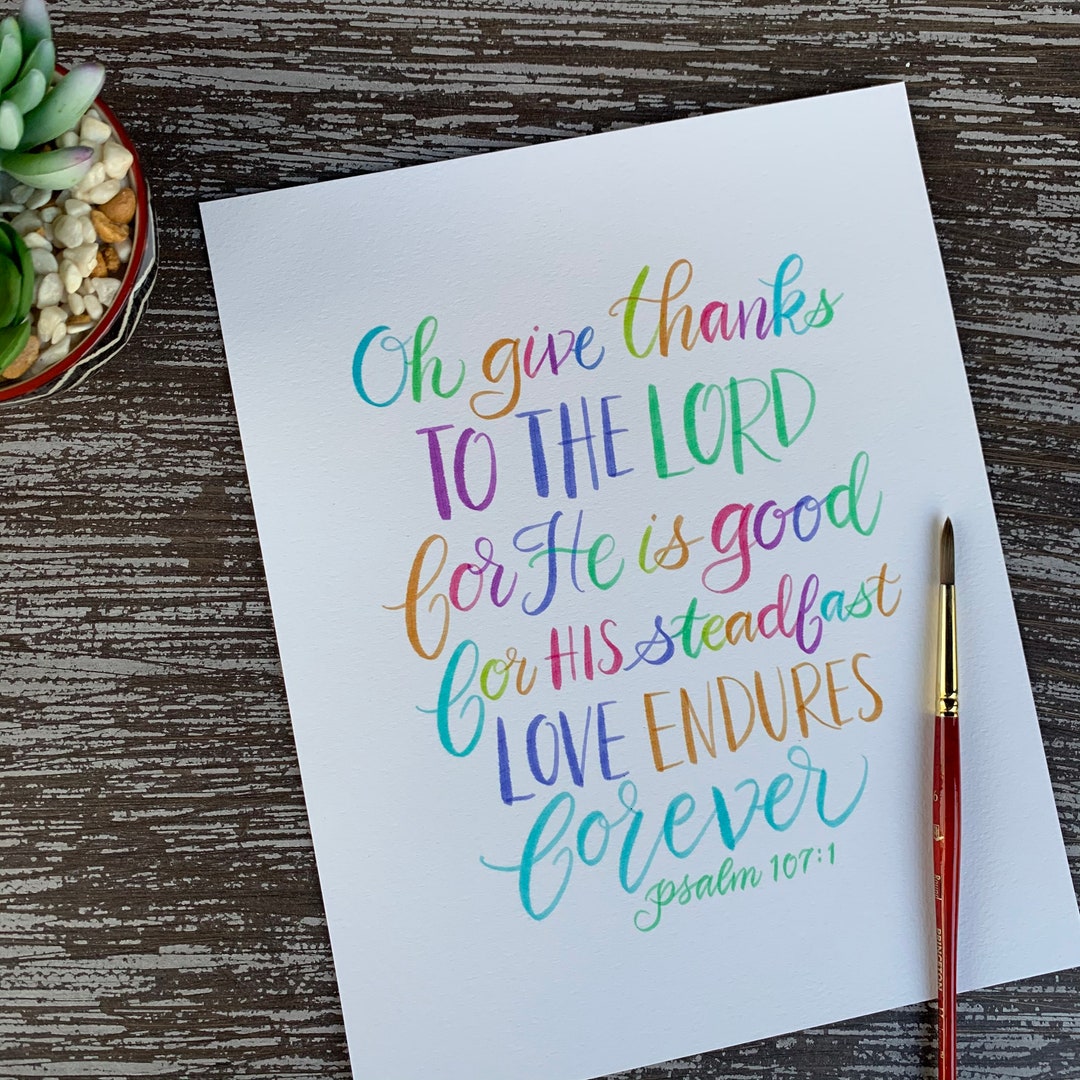 Oh give thanks
TO THE LORD
for He is good
for HIS steadfast
LOVE ENDURES
forever
psalm 107:1
6
Round
PRINCETON